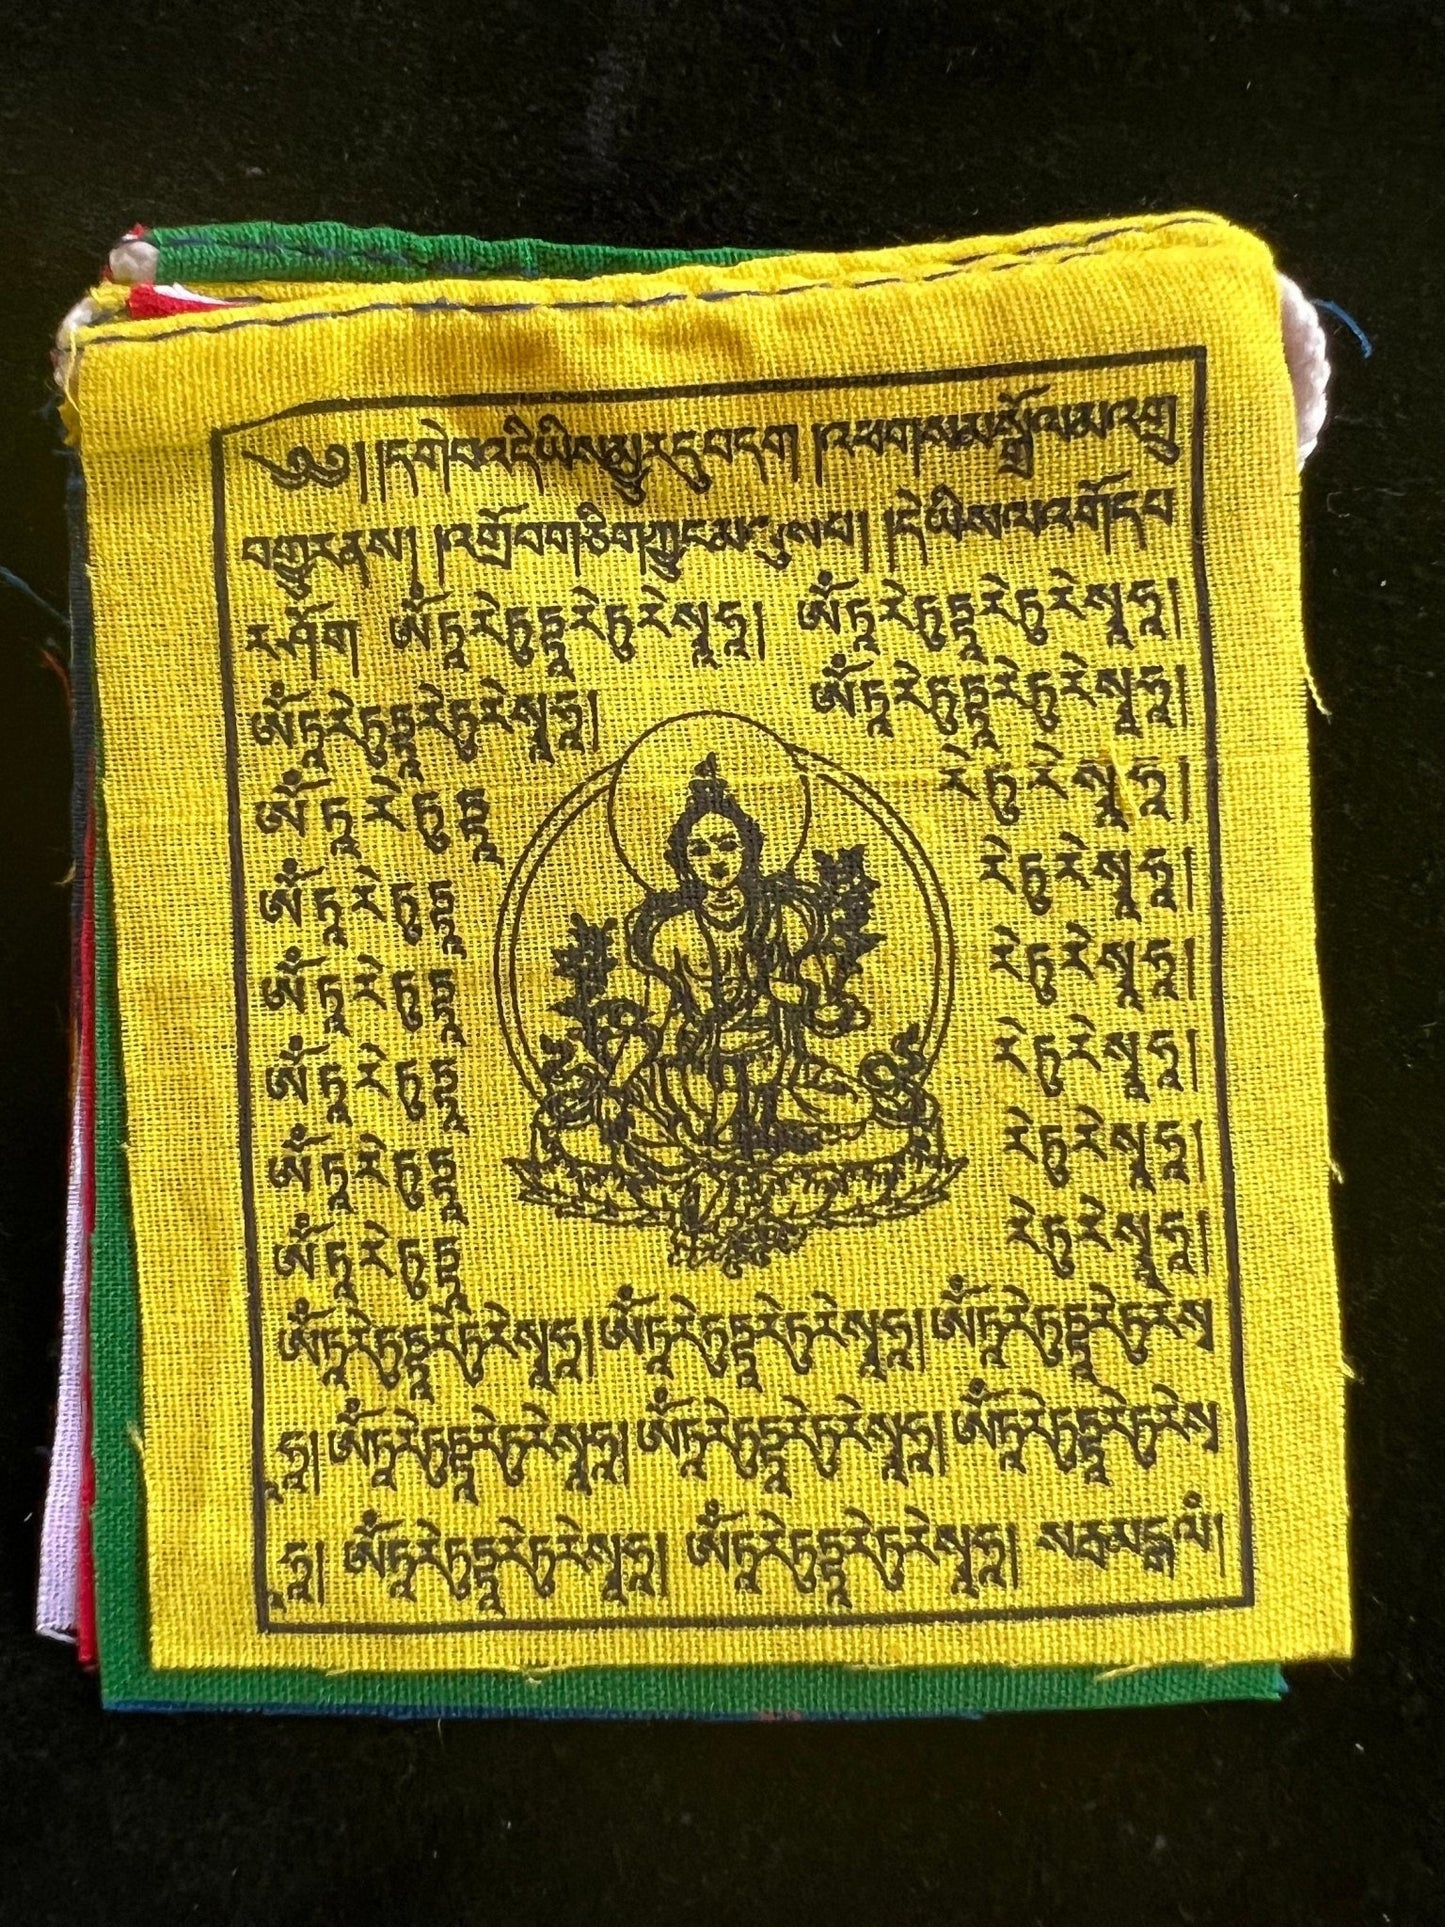 ༄༅། །དགེ་བ་འདི་ཡིས་མྱུར་དུ་བདག །འཕགས་མ་སྒྲོལ་མ་འགྲུ
བགྱུར་ནས། །འགྲོ་བ་གཅིག་ཀྱང་མ་ལུས་པ། །དེ་ཡིས་ལ་འགོད་པ
ར་ཤོག ༀ་ཏཱ་རེ་ཏུ་ཏྟཱ་རེ་ཏུ་རེ་སྭཱ་ཧཱ། ༀ་ཏཱ་རེ་ཏུ་ཏྟཱ་རེ་ཏུ་རེ་སྭཱ་ཧཱ།
ༀ་ཏཱ་རེ་ཏུ་ཏྟཱ་རེ་ཏུ་རེ་སྭཱ་ཧཱ། ༀ་ཏཱ་རེ་ཏུ་ཏྟཱ་རེ་ཏུ་རེ་སྭཱ་ཧཱ།
ༀ་ཏཱ་རེ་ཏུ་ཏྟཱ རེ་ཏུ་རེ་སྭཱ་ཧཱ།
ༀ་ཏཱ་རེ་ཏུ་ཏྟཱ རེ་ཏུ་རེ་སྭཱ་ཧཱ།
ༀ་ཏཱ་རེ་ཏུ་ཏྟཱ རེ་ཏུ་རེ་སྭཱ་ཧཱ།
ༀ་ཏཱ་རེ་ཏུ་ཏྟཱ རེ་ཏུ་རེ་སྭཱ་ཧཱ།
ༀ་ཏཱ་རེ་ཏུ་ཏྟཱ རེ་ཏུ་རེ་སྭཱ་ཧཱ།
ༀ་ཏཱ་རེ་ཏུ་ཏྟཱ རེ་ཏུ་རེ་སྭཱ་ཧཱ།
ༀ་ཏཱ་རེ་ཏུ་ཏྟཱ་རེ་ཏུ་རེ་སྭཱ་ཧཱ། ༀ་ཏཱ་རེ་ཏུ་ཏྟཱ་རེ་ཏུ་རེ་སྭཱ་ཧཱ། ༀ་ཏཱ་རེ་ཏུ་ཏྟཱ་རེ་ཏུ་རེ་སྭ
ཧཱ། ༀ་ཏཱ་རེ་ཏུ་ཏྟཱ་རེ་ཏུ་རེ་སྭཱ་ཧཱ། ༀ་ཏཱ་རེ་ཏུ་ཏྟཱ་རེ་ཏུ་རེ་སྭཱ་ཧཱ། ༀ་ཏཱ་རེ་ཏུ་ཏྟཱ་རེ་ཏུ་རེ་སྭ
ཧཱ། ༀ་ཏཱ་རེ་ཏུ་ཏྟཱ་རེ་ཏུ་རེ་སྭཱ་ཧཱ། ༀ་ཏཱ་རེ་ཏུ་ཏྟཱ་རེ་ཏུ་རེ་སྭཱ་ཧཱ། སརྦ་མངྒ་ལཾ།